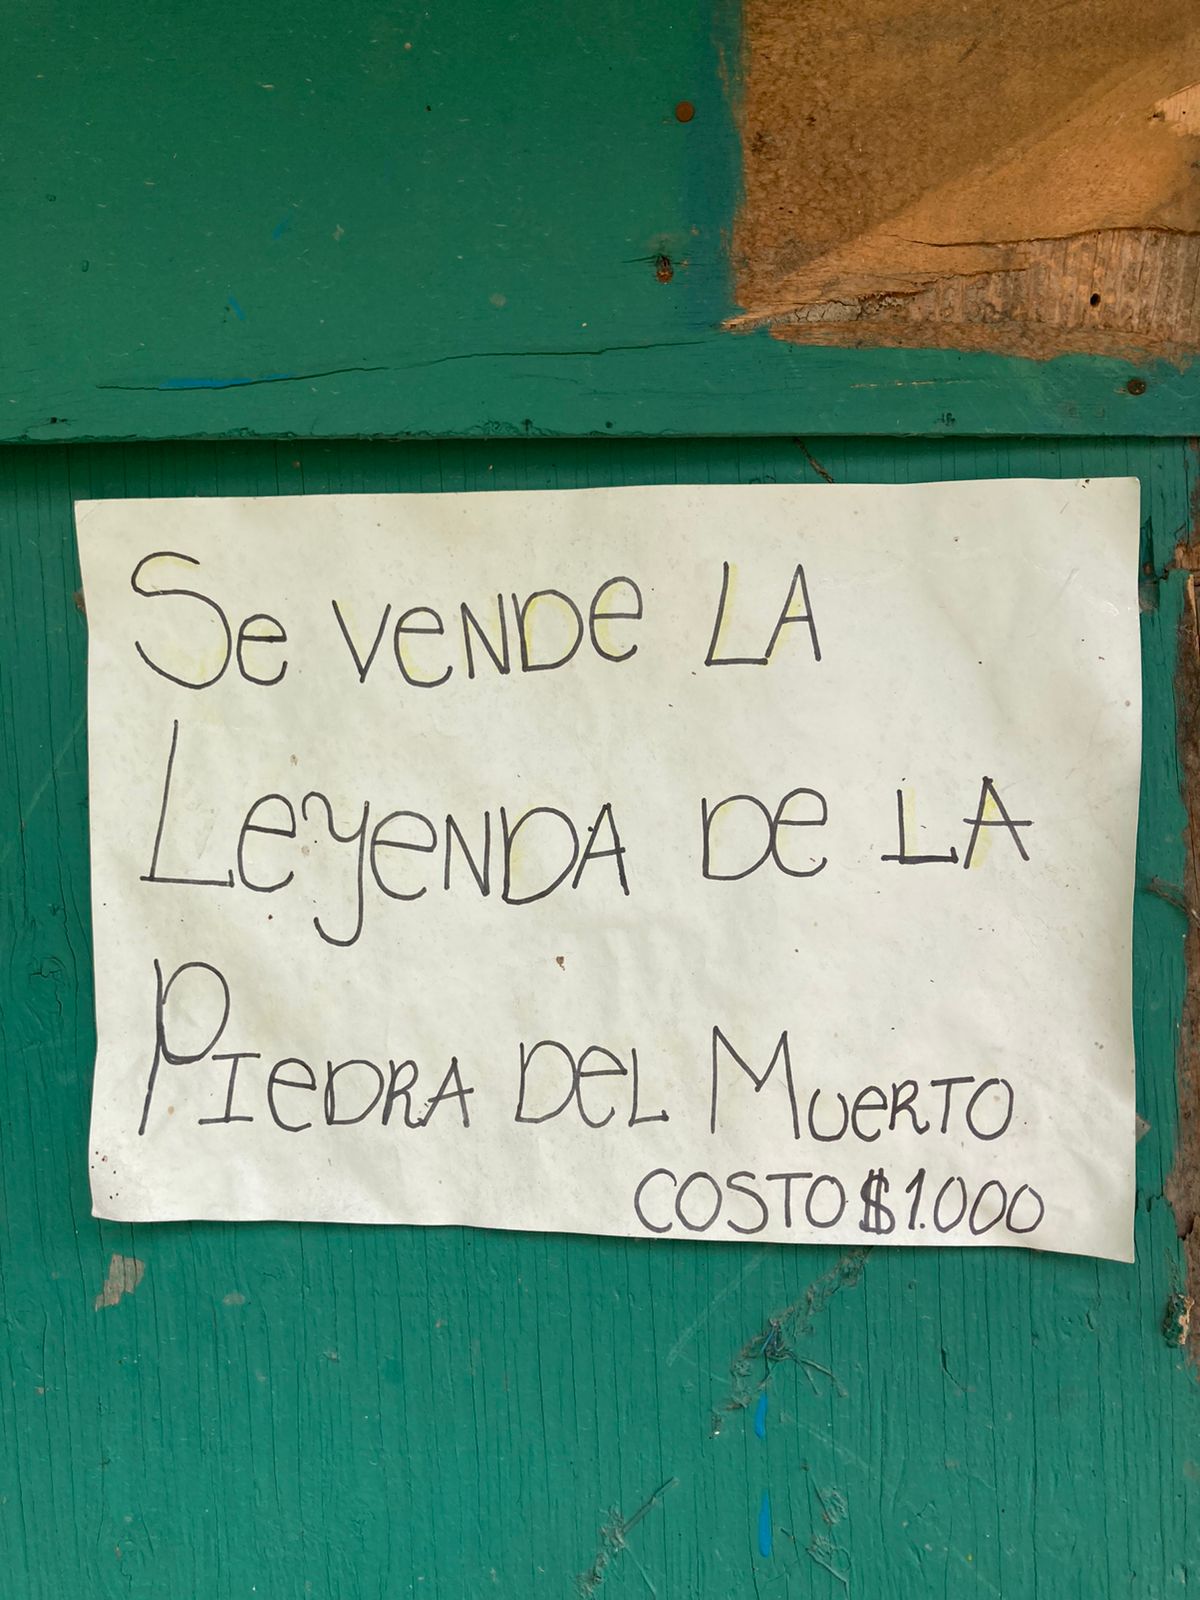 Se VeNDe LA
LeyeNDA De LA
PIeDRA DeL MueRTO
COSTO $1.000